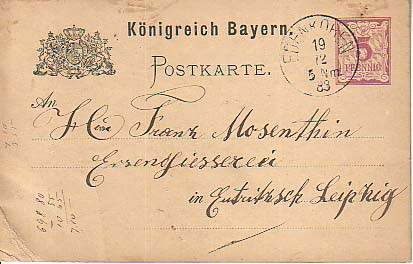 Königreich Bayern.
POSTKARTE.
EDENKOBEN
19
12
5 Nm
83
5
PFENNIG
An
Herrn Franz Mosenthin
Eisengiesserei
in Eutritzsch Leipzig
698 80
55
10 65
7.10